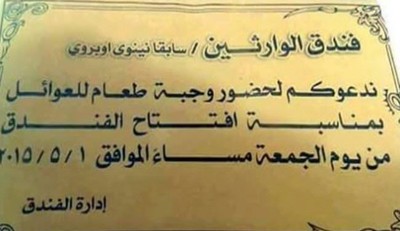 فندق الوارثين / سابقا نينوى اوبروي
ندعوكم لحضور وجبة طعام للعوائل
بمناسبة افتتاح الفندق
من يوم الجمعة مساءً الموافق ٢٠١٥/٥/١
إدارة الفندق